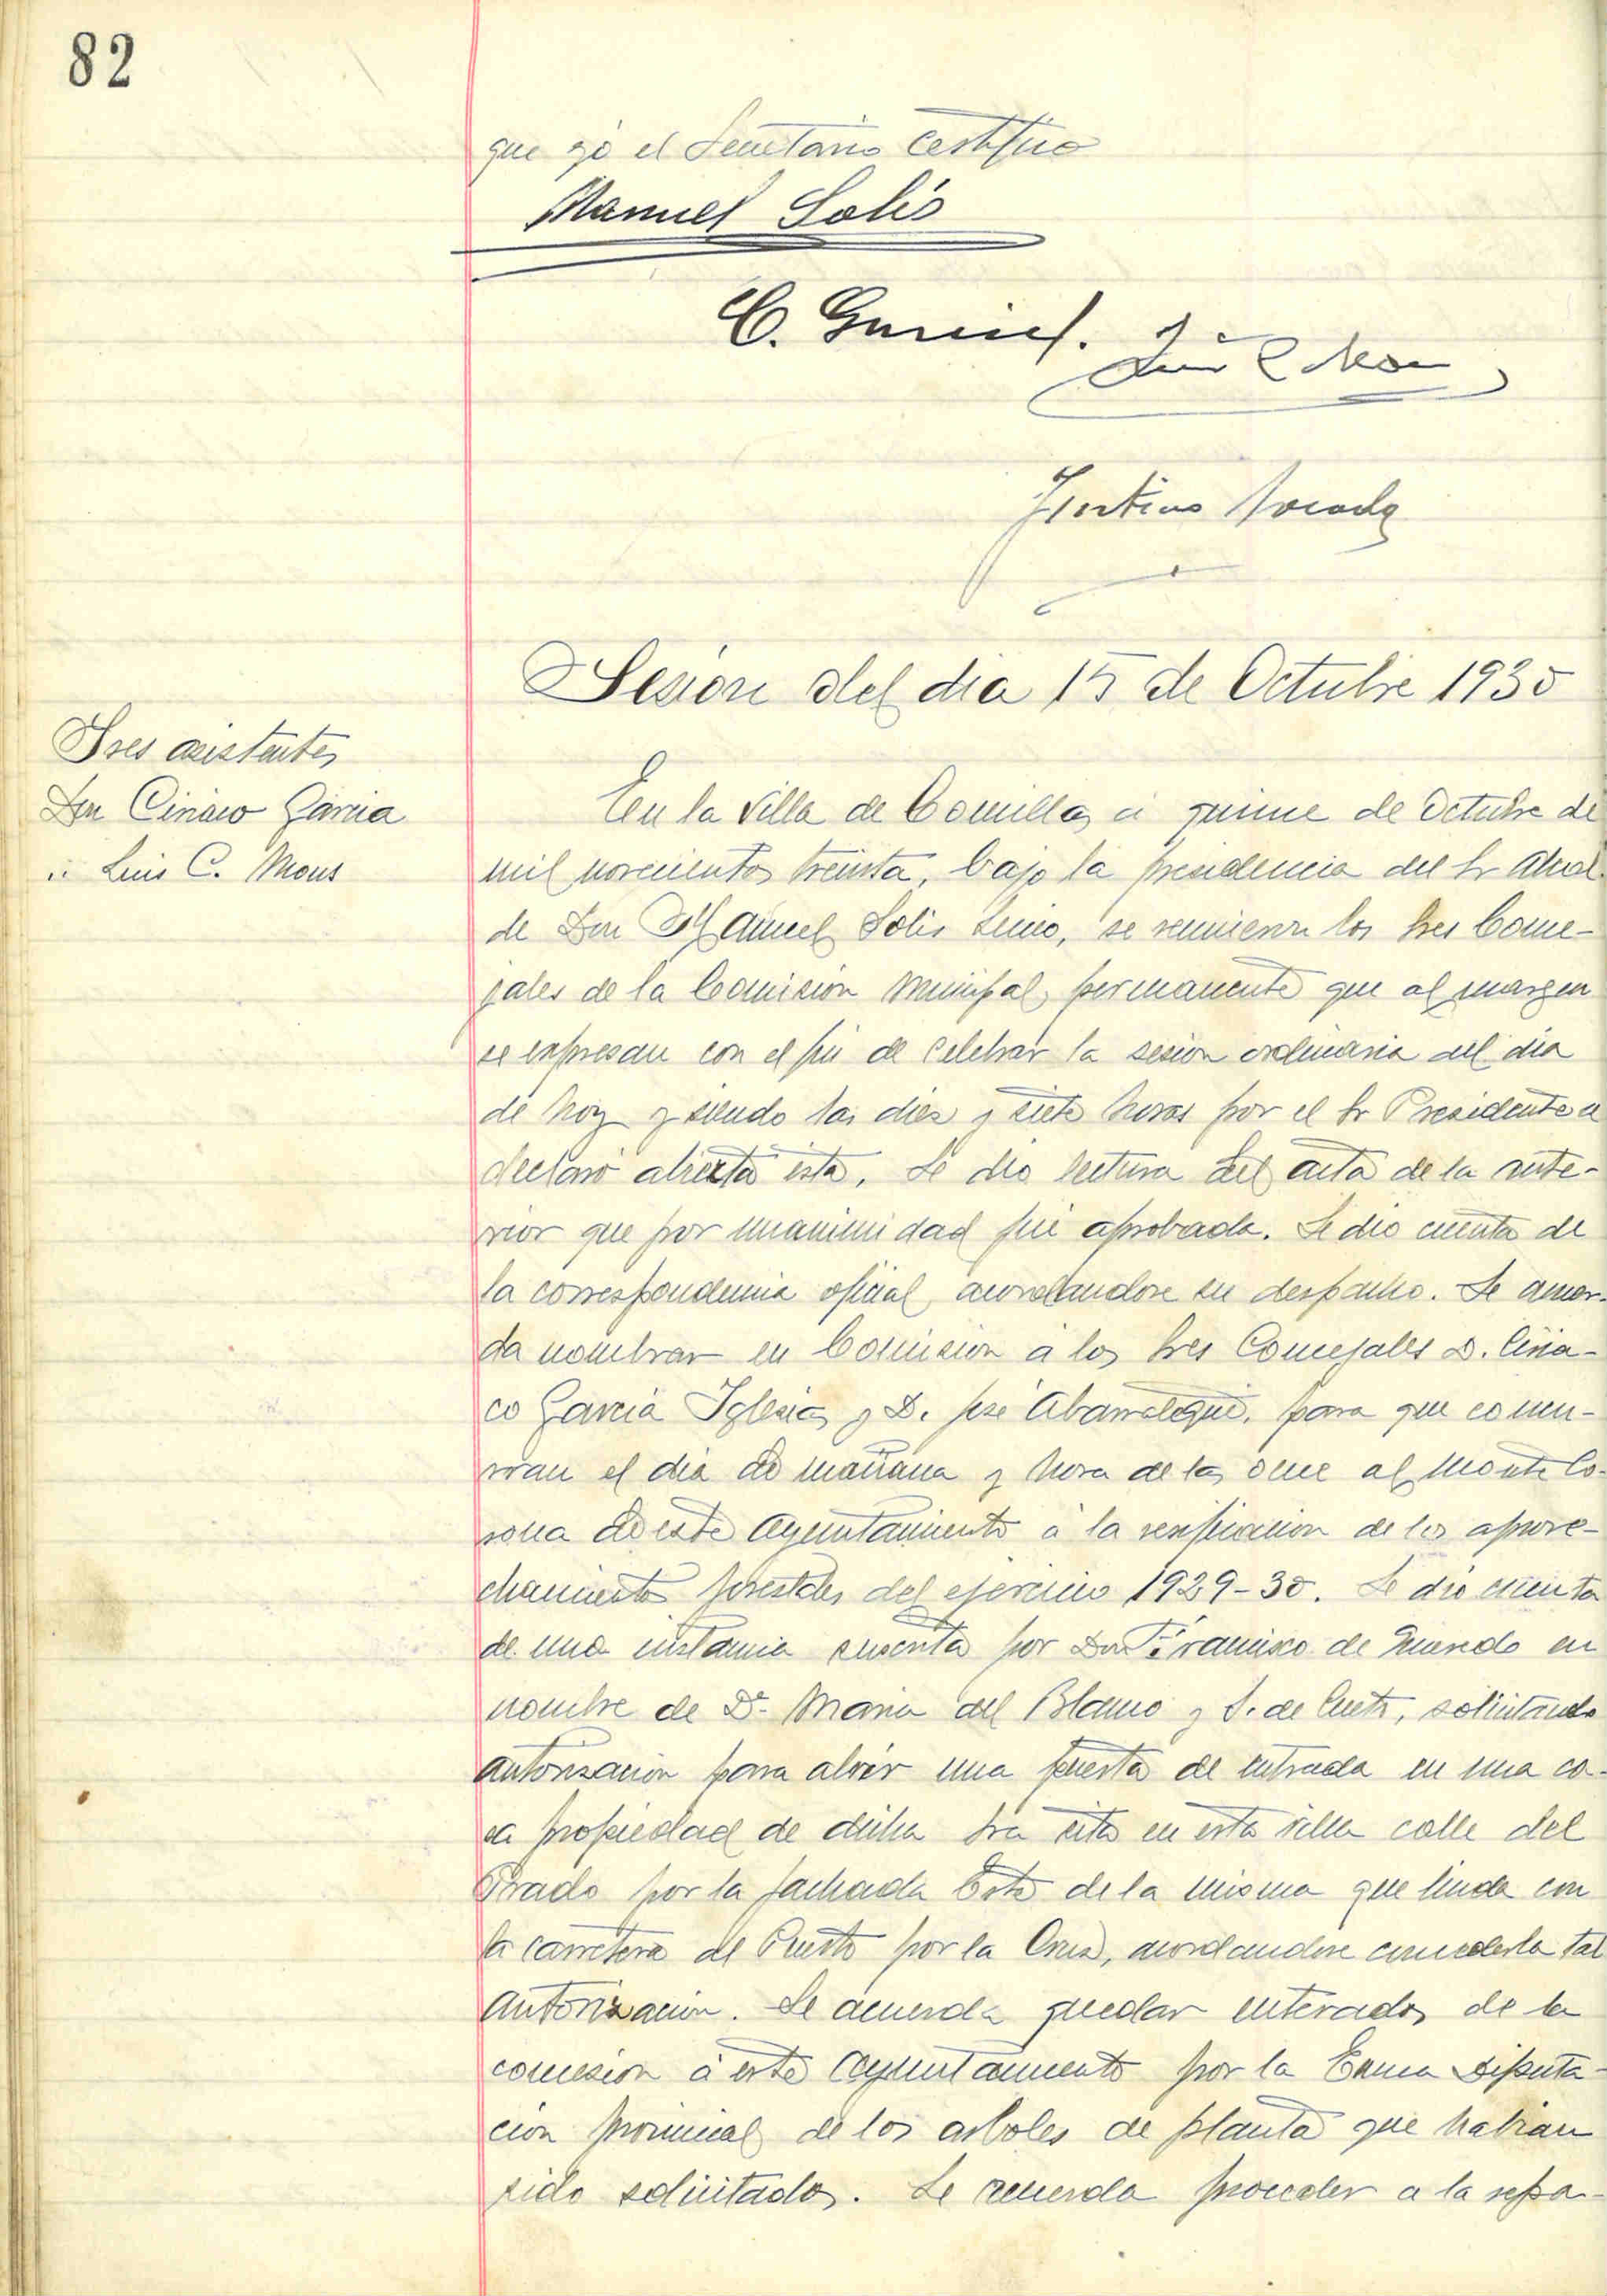 82
que yo el Secretario certifico
Manuel Solís
C. García.
Luis C. Mons
Sesion del dia 15 de Octubre 1930
Sres asistentes
Don Ciriaco Garcia
" Luis C. Mons
En la Villa de Comillas a quince de Octubre de
mil novecientos treinta, bajo la presidencia del Sr Alcal-
de Don Manuel Solis, se reunieron los Sres Conce-
jales de la Comision Municipal permanente que al margen
se expresan con el fin de celebrar la sesion ordinaria del dia
de hoy y siendo las diez y siete horas por el Sr Presidente se
declaró abierta esta. Se dio lectura del acta de la ante-
rior que por unanimidad fué aprobada. Se dio cuenta de
la correspondencia oficial acordandose su despacho. Se acuer-
da nombrar en Comision a los Sres Concejales D. Ciria-
co Garcia Iglesias y D. José para que concu-
rran el dia de mañana y hora de las once al Monte Co-
rona de este Ayuntamiento a la verificacion de los aprove-
chamientos forestales del ejercicio 1929-30. Se dio cuenta
de una instancia suscrita por Don Francisco de en
nombre de Dª Maria del Blanco y S. de Cueto, solicitando
autorizacion para abrir una puerta de entrada en una ca-
sa propiedad de dicha Sra sita en esta villa calle del
Prado por la fachada Este de la misma que linda con
la carretera al Puerto por la Cruz, acordandose concederla tal
autorizacion. Se acuerda quedar enterados de la
concesion a este Ayuntamiento por la Excma Diputa-
cion provincial de los arboles de planta que habian
sido solicitados. Se acuerda proceder a la repa-